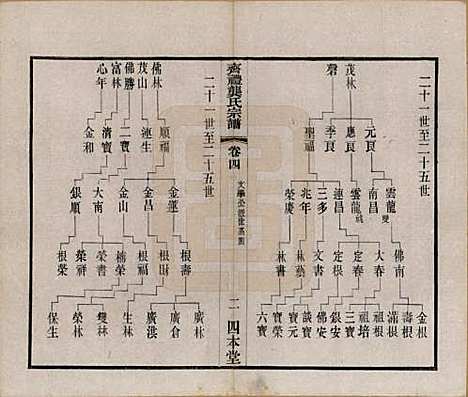 二十一世至二十五世
茂林
磬
元良
應良
季良
聖福
雲龍雙
南昌
雲龍成
連昌
三多
兆年
榮慶
佛南
大春
定春
定根
文書
林藝
林書
金根
壽根
滿根
祖根
祖培
三寶
銀安
佛安
談寶
寶元
寶榮
六寶
齊禮龔氏宗譜
卷四
二
四本堂
佛林
茂山
佛勝
富林
心年
二十一世至二十五世
順福
連生
二寶
清寶
金和
金運
金昌
金山
大南
銀順
根壽
根財
根福
楠榮
榮書
榮祥
根榮
廣林
廣倉
廣洪
生林
雙林
榮林
保生